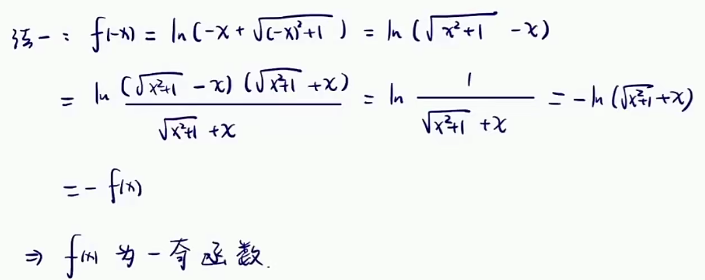 法一：f(-x) = ln(-x + √((-x)²+1)) = ln(√(x²+1) - x)
= ln ((√(x²+1) - x)(√(x²+1) + x))/(√(x²+1) + x) = ln 1/(√(x²+1) + x) = -ln(√(x²+1) + x)
= - f(x)
⇒ f(x) 为一奇函数.